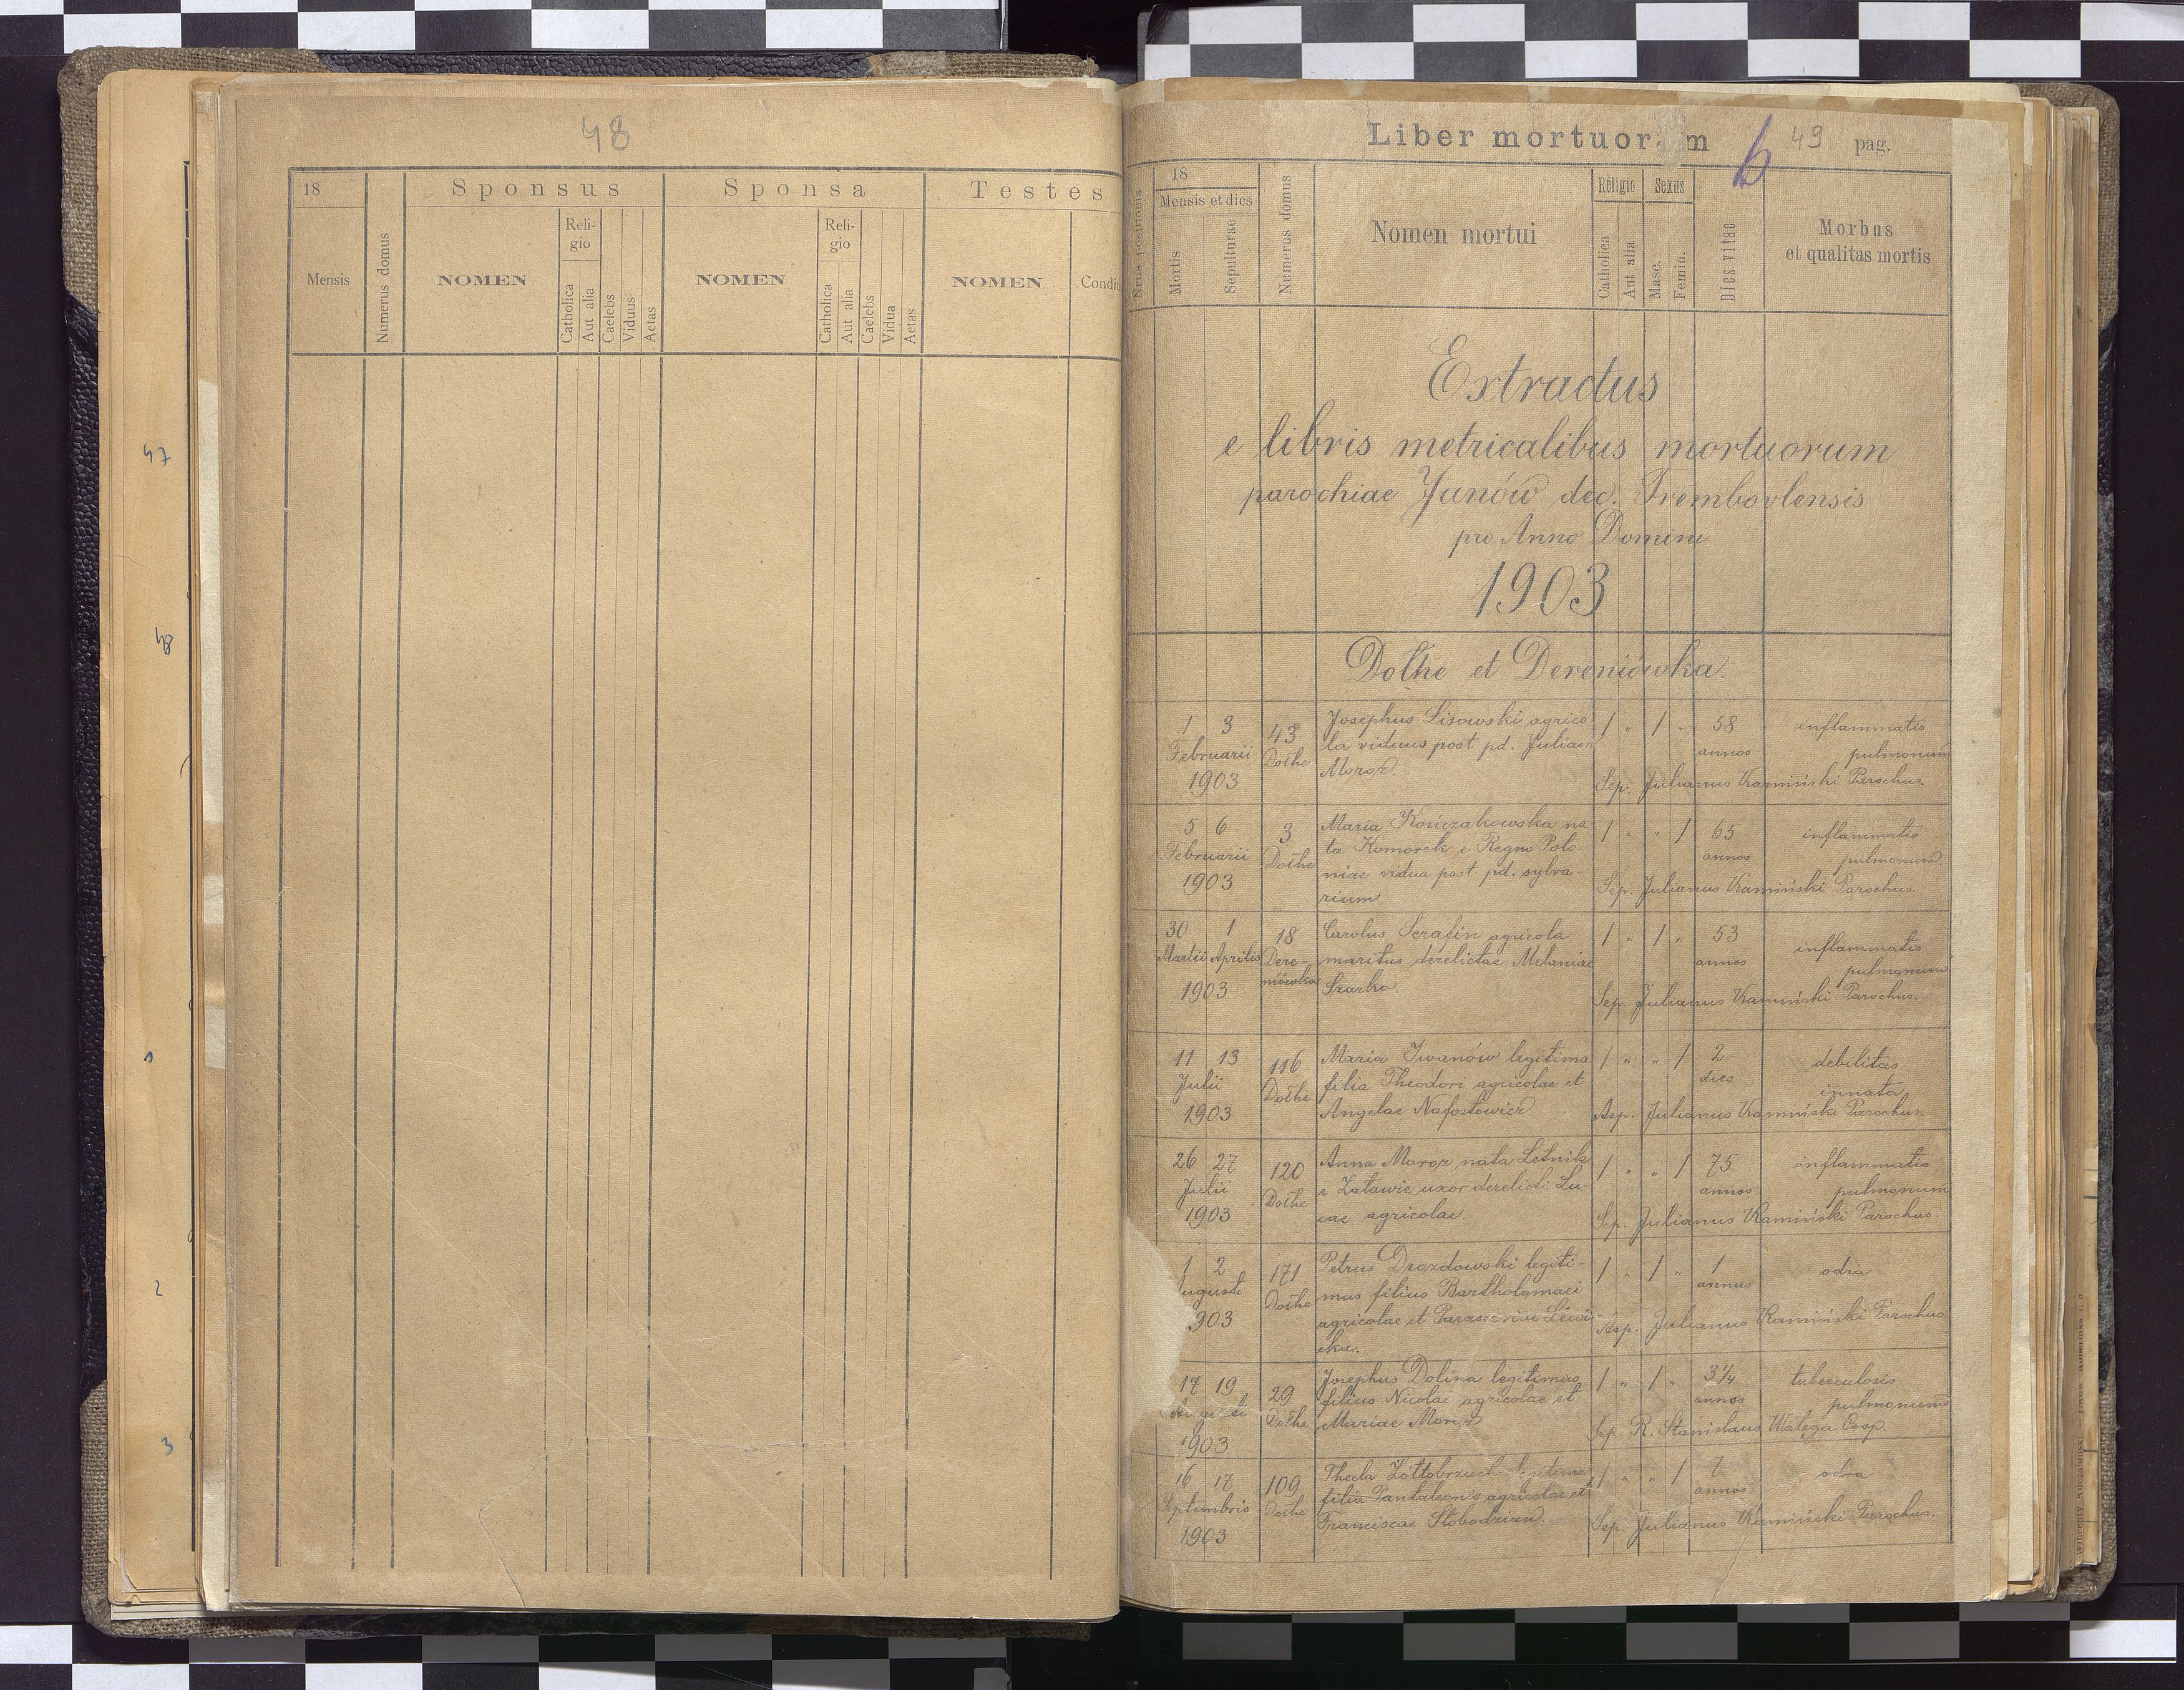 48
18
Sponsus
Sponsa
Testes
Mensis
Numerus domus
NOMEN
Reli-
gio
Catholica
Aut alia
Caelebs
Viduus
Aetas
NOMEN
Reli-
gio
Catholica
Aut alia
Caelebs
Vidua
Aetas
NOMEN
47
2
3
Liber mortuor m
49 pag.
Nrus positionis
18
Mensis et dies
Mortis
Sepulturae
Numerus domus
Nomen mortui
Religio
Catholica
Aut alia
Sexus
Masc.
Femin.
Dies vitae
Morbus
et qualitas mortis
Extractus
e libris metricalibus mortuorum
parochiae Janów dec. Trembovlensis
pro Anno Domini
1903
Dołhe et Dereniówka.
1 3
Februarii
1903
43
Dołhe
Josephus Lisowski agrico
la viduus post pd. Julian
Moroz.
1 " 1 "
58
annos
inflammatio
pulmonum
Sep. Julianus Kamiński Parochus.
5 6
Februarii
1903
3
Dołhe
Maria Kończakowska na
ta Komorek e Regno Polo
niae vidua post pd. sylva-
rium
1 " " 1
65
annos
inflammatio
pulmonum
Sep. Julianus Kamiński Parochus.
30 1
Martii Aprilis
1903
18
Dere-
niówka
Carolus Serafin agricola
maritus derelictae Melaniae
Szarko.
1 " 1 "
53
annos
inflammatio
pulmonum
Sep. Julianus Kamiński Parochus.
11 13
Julii
1903
116
Dołhe
Maria Iwanów legitima
filia Theodori agricolae et
Angelae Nafostowicz
1 " " 1
2
dies
debilitas
innata
Asp. Julianus Kamiński Parochus.
26 27
Julii
1903
120
Dołhe
Anna Moroz nata Letnik
e Załawie uxor derelicti Lu-
cae agricolae.
1 " " 1
75
annos
inflammatio
pulmonum
Sep. Julianus Kamiński Parochus.
1 2
ugusti
903
171
Dołhe
Petrus Drozdowski legiti-
mus filius Bartholomaei
agricolae et Parasceviae Lewi-
cka.
1 " 1 "
1
annus
odra
Asp. Julianus Kamiński Parochus
17 19
1903
29
Dołhe
Josephus Dolina legitimus
filius Nicolai agricolae et
Mariae Moroz
1 " 1 "
3 1/4
annos
tuberculosis
pulmonum
Sep. R. Stanislaus Wałęga Coop.
16 17
Septembris
1903
109
Dołhe
Thecla Żółtobrzuch legitima
filia Pantaleonis agricolae et
Franciscae Słobodzian.
1 " " 1
7
annos
odra
Sep. Julianus Kamiński Parochus.